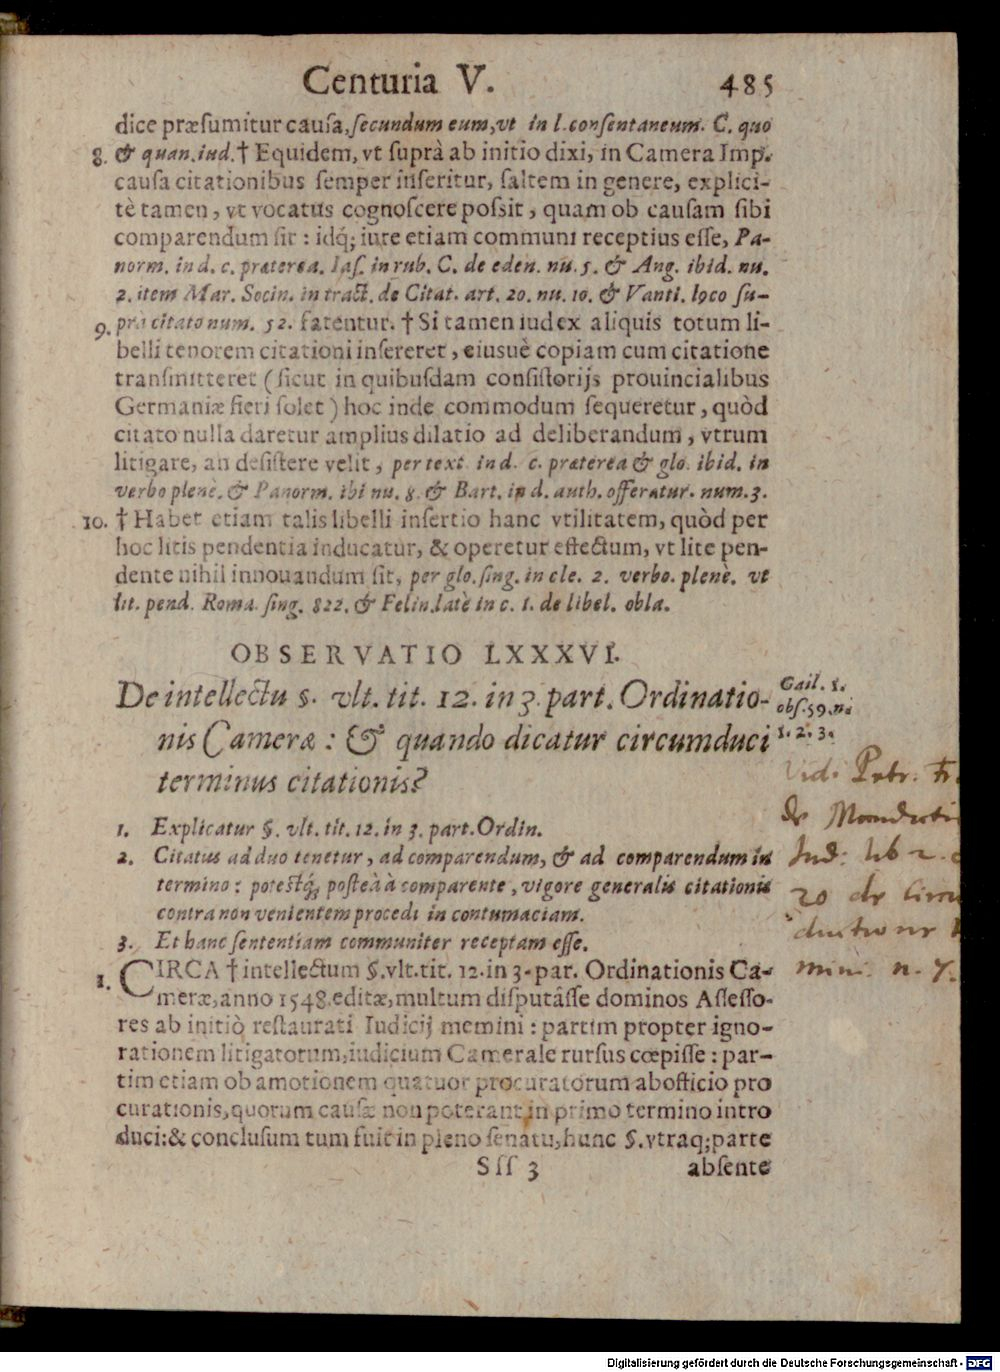 Centuria V. 485
dice præsumitur causa, secundum eum, vt in l. consentaneum. C. quo
8. & quan. iud. † Equidem, vt suprà ab initio dixi, in Camera Imp.
causa citationibus semper inseritur, saltem in genere, explici-
tè tamen, vt vocatus cognoscere possit, quam ob causam sibi
comparendum sit: idq́; iure etiam communi receptius esse, Pa-
norm. in d. c. præterea. Ias. in rub. C. de eden. nu. 5. & Ang. ibid. nu.
2. item Mar. Socin. in tract. de Citat. art. 20. nu. 10. & Vanti. loco su-
9. prà citato num. 52. fatentur. † Si tamen iudex aliquis totum li-
belli tenorem citationi insereret, eiusuè copiam cum citatione
transmitteret (sicut in quibusdam consistorijs prouincialibus
Germaniæ fieri solet) hoc inde commodum sequeretur, quòd
citato nulla daretur amplius dilatio ad deliberandum, vtrum
litigare, an desistere velit, per text. in d. c. præterea & glo. ibid. in
verbo plenè. & Panorm. ibi nu. 8. & Bart. in d. auth. offeratur. num. 3.
10. † Habet etiam talis libelli insertio hanc vtilitatem, quòd per
hoc litis pendentia inducatur, & operetur effectum, vt lite pen-
dente nihil innouandum sit, per glo. sing. in cle. 2. verbo. plenè. vt
lit. pend. Roma. sing. 822. & Felin. latè in c. 1. de libel. obla.
OBSERVATIO LXXXVI.
De intellectu §. vlt. tit. 12. in 3. part. Ordinatio-
nis Cameræ: & quando dicatur circumduci
terminus citationis?
Gail. 1.
obs. 59. n.
1. 2. 3.
Vid. Petr.
de
Iud: lib 2.
20 de
n. 7.
1. Explicatur §. vlt. tit. 12. in 3. part. Ordin.
2. Citatus ad duo tenetur, ad comparendum, & ad comparendum in
termino: potestq́; posteà à comparente, vigore generalis citationis
contra non venientem procedi in contumaciam.
3. Et hanc sententiam communiter receptam esse.
1. CIRCA † intellectum §. vlt. tit. 12. in 3. par. Ordinationis Ca-
meræ, anno 1548. editæ, multum disputâsse dominos Assesso-
res ab initiò restaurati Iudicij memini: partim propter igno-
rationem litigatorum, iudicium Camerale rursus cœpisse: par-
tim etiam ob amotionem quatuor procuratorum ab officio pro
curationis, quorum causæ non poterant in primo termino intro
duci: & conclusum tum fuit in pleno senatu, hunc §. vtraq; parte
Sss 3 absente
Digitalisierung gefördert durch die Deutsche Forschungsgemeinschaft - DFG